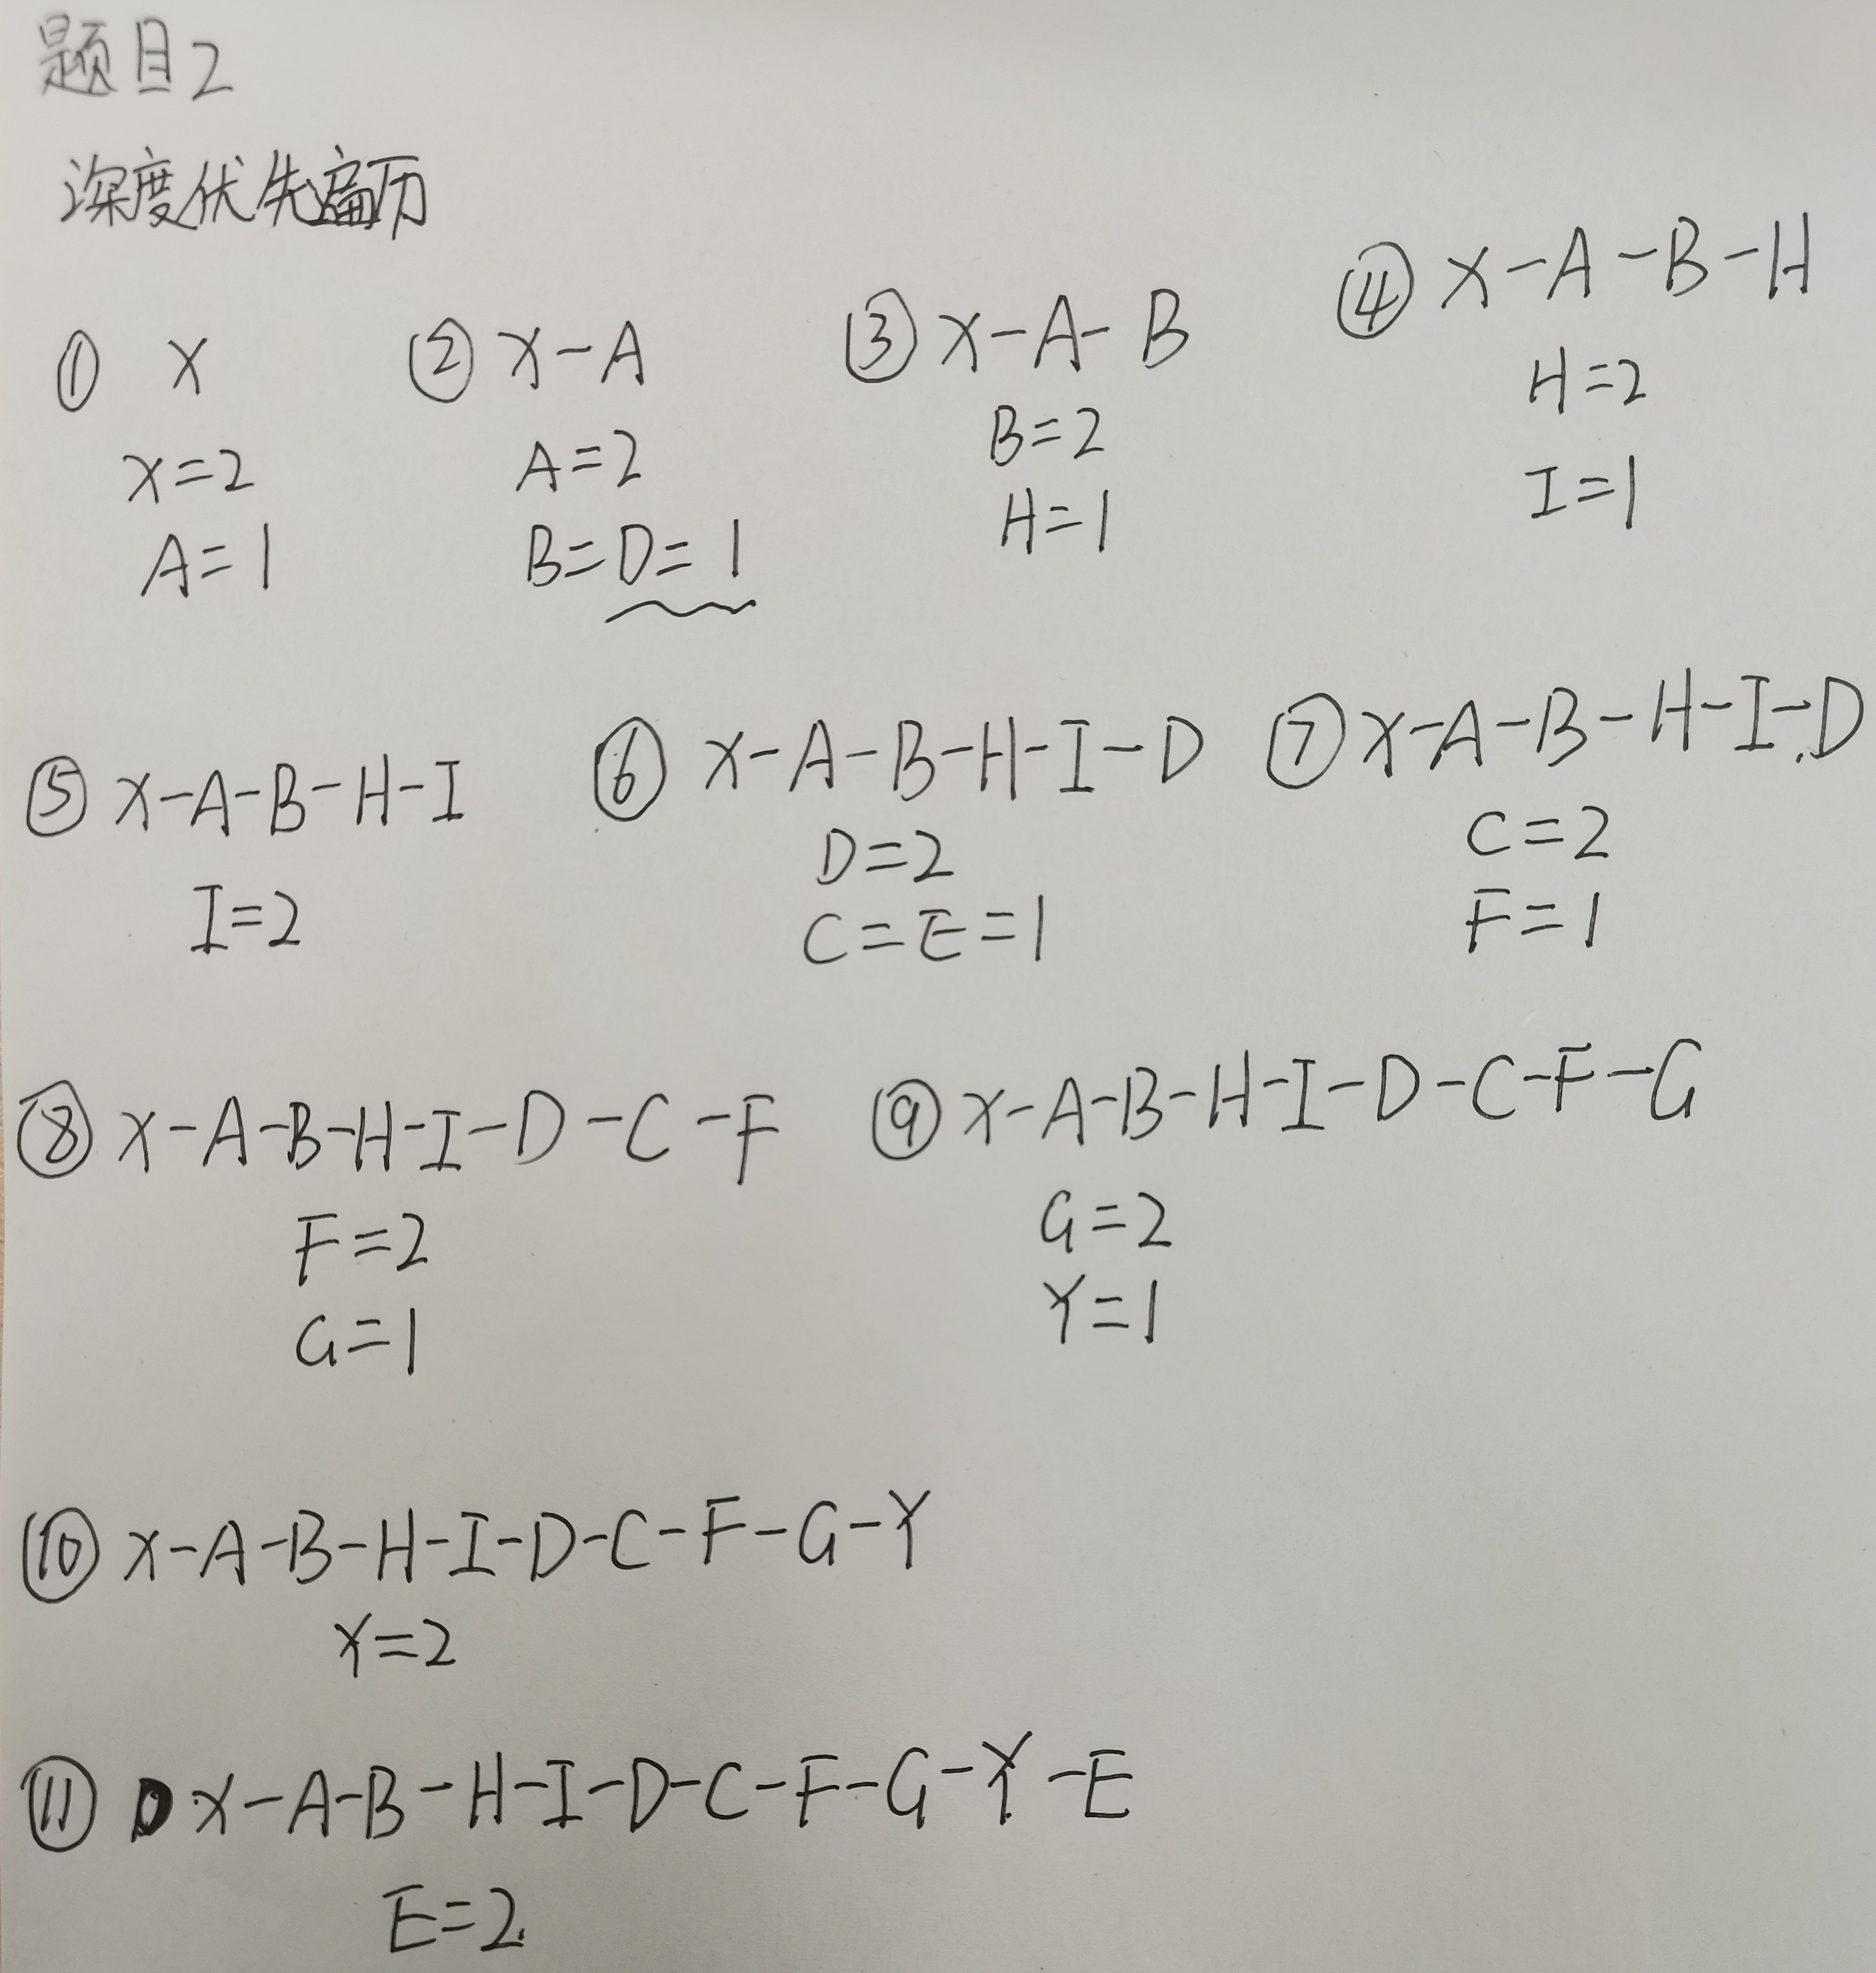 题目2
深度优先遍历
① X
X=2
A=1
② X-A
A=2
B=D=1
③ X-A-B
B=2
H=1
④ X-A-B-H
H=2
I=1
⑤ X-A-B-H-I
I=2
⑥ X-A-B-H-I-D
D=2
C=E=1
⑦ X-A-B-H-I-D
C=2
F=1
⑧ X-A-B-H-I-D-C-F
F=2
G=1
⑨ X-A-B-H-I-D-C-F-G
G=2
Y=1
⑩ X-A-B-H-I-D-C-F-G-Y
Y=2
⑪ X-A-B-H-I-D-C-F-G-Y-E
E=2